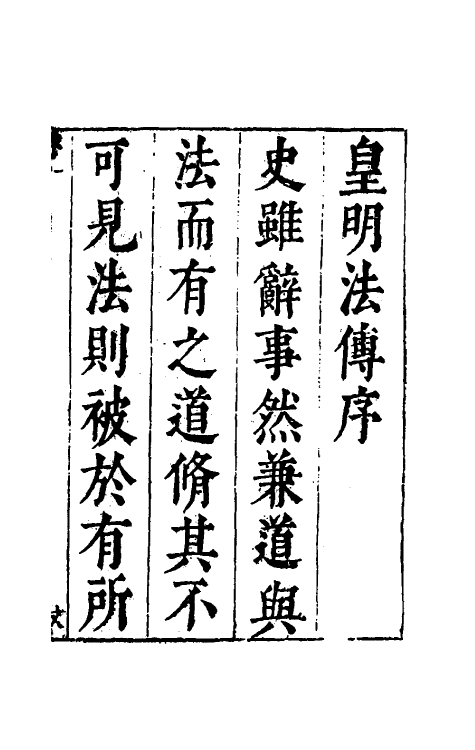 皇明法傳序
史雖辭事然兼道與
法而有之道脩其不
可見法則被於有所